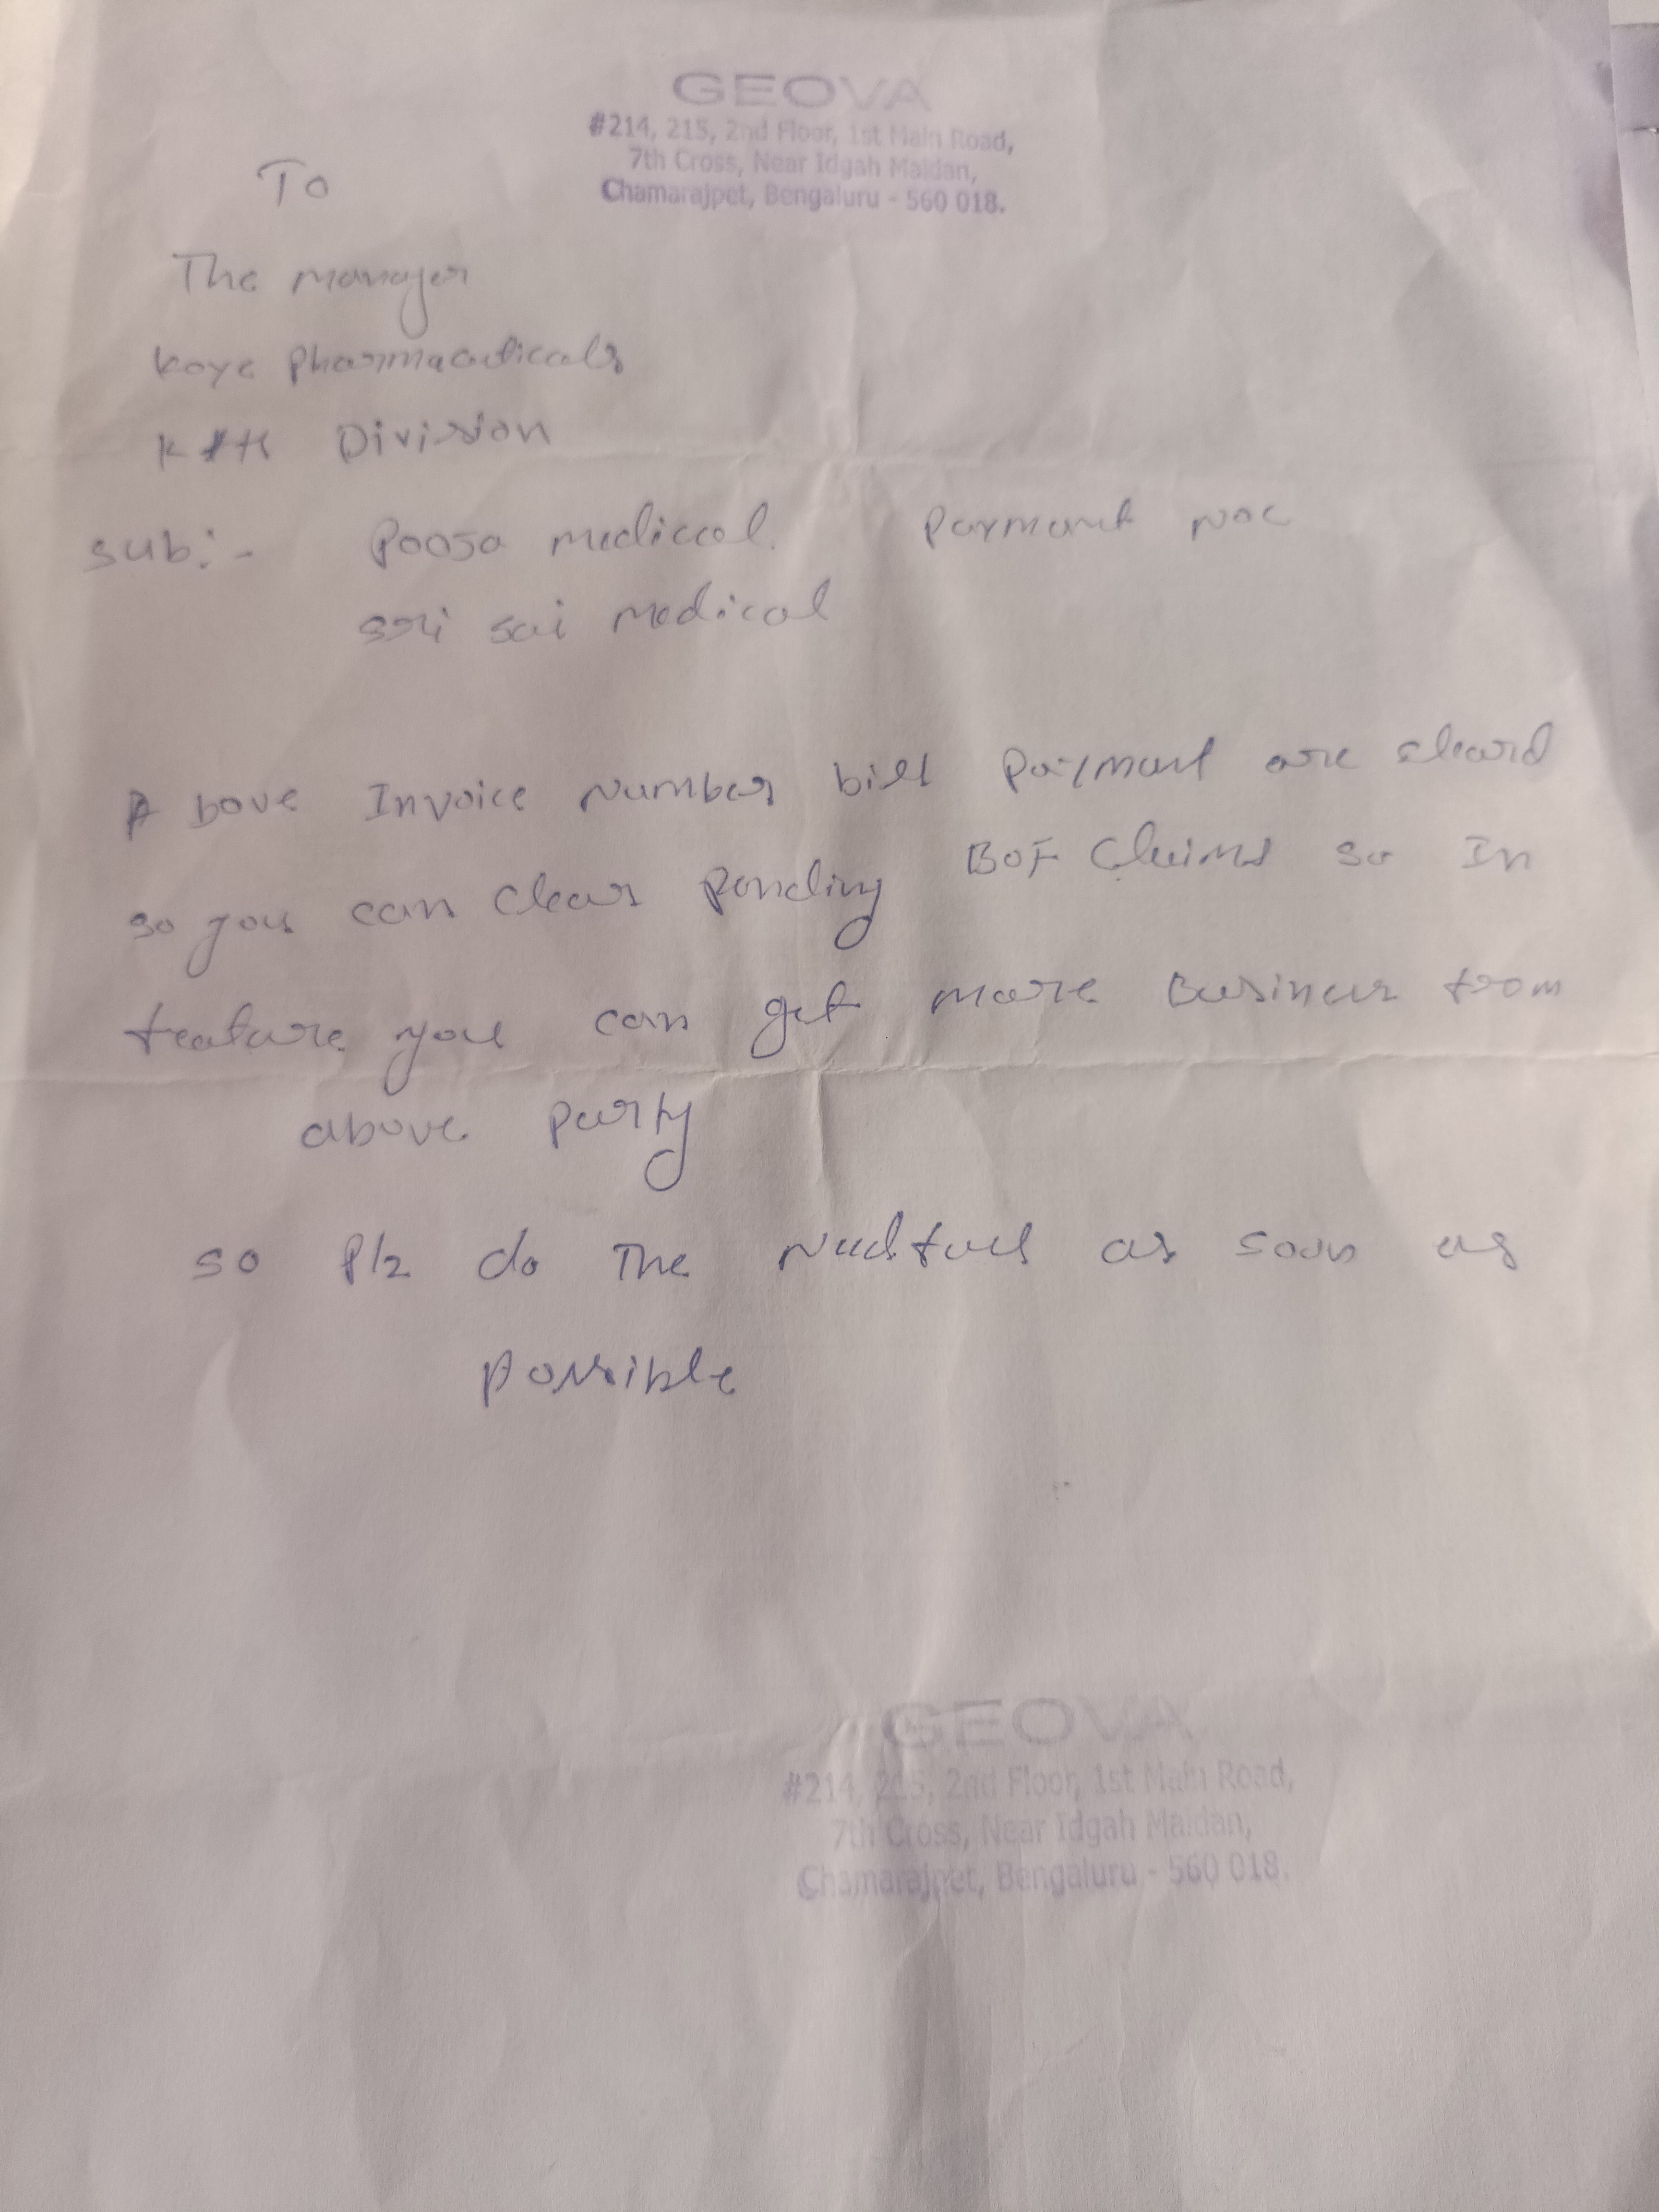 GEOVA
#214, 215, 2nd Floor, 1st Main Road,
7th Cross, Near Idgah Maidan,
Chamarajpet, Bengaluru - 560 018.
To
The manager
Koye Pharmaceuticals
Division
sub:- Pooja medical Payment NOC
sri sai medical
Above Invoice Number bill Payment are cleard
so you can clear Pending BOF Claims so In
feature you can get more Business from
above party
so Plz do the Needfull as soon as
possible
GEOVA
#214, 215, 2nd Floor, 1st Main Road,
7th Cross, Near Idgah Maidan,
Chamarajpet, Bengaluru - 560 018.